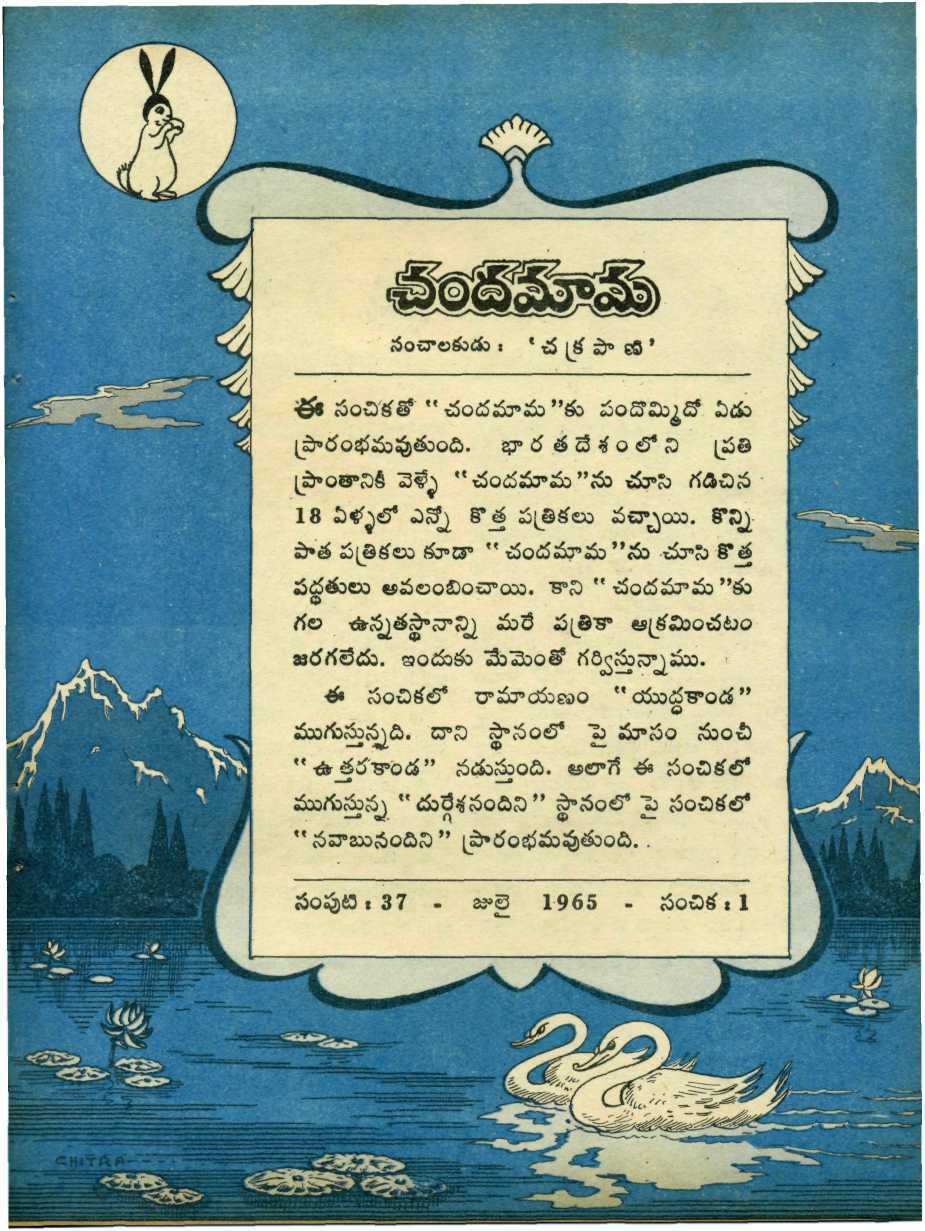 చందమామ
సంచాలకుడు : ‘చక్రపాణి’
ఈ సంచికతో “చందమామ”కు పందొమ్మిదో ఏడు
ప్రారంభమవుతుంది. భారతదేశంలోని ప్రతి
ప్రాంతానికీ వెళ్ళే “చందమామ”ను చూసి గడిచిన
18 ఏళ్ళలో ఎన్నో కొత్త పత్రికలు వచ్చాయి. కొన్ని
పాత పత్రికలు కూడా “చందమామ”ను చూసి కొత్త
పద్ధతులు అవలంబించాయి. కాని “చందమామ”కు
గల ఉన్నతస్థానాన్ని మరే పత్రికా ఆక్రమించటం
జరగలేదు. ఇందుకు మేమెంతో గర్విస్తున్నాము.
ఈ సంచికలో రామాయణం “యుద్ధకాండ”
ముగుస్తున్నది. దాని స్థానంలో పై మాసం నుంచీ
“ఉత్తరకాండ” నడుస్తుంది. అలాగే ఈ సంచికలో
ముగుస్తున్న “దుర్గేశనందిని” స్థానంలో పై సంచికలో
“నవాబునందిని” ప్రారంభమవుతుంది.
సంపుటి : 37 - జులై 1965 - సంచిక : 1
CHITRA